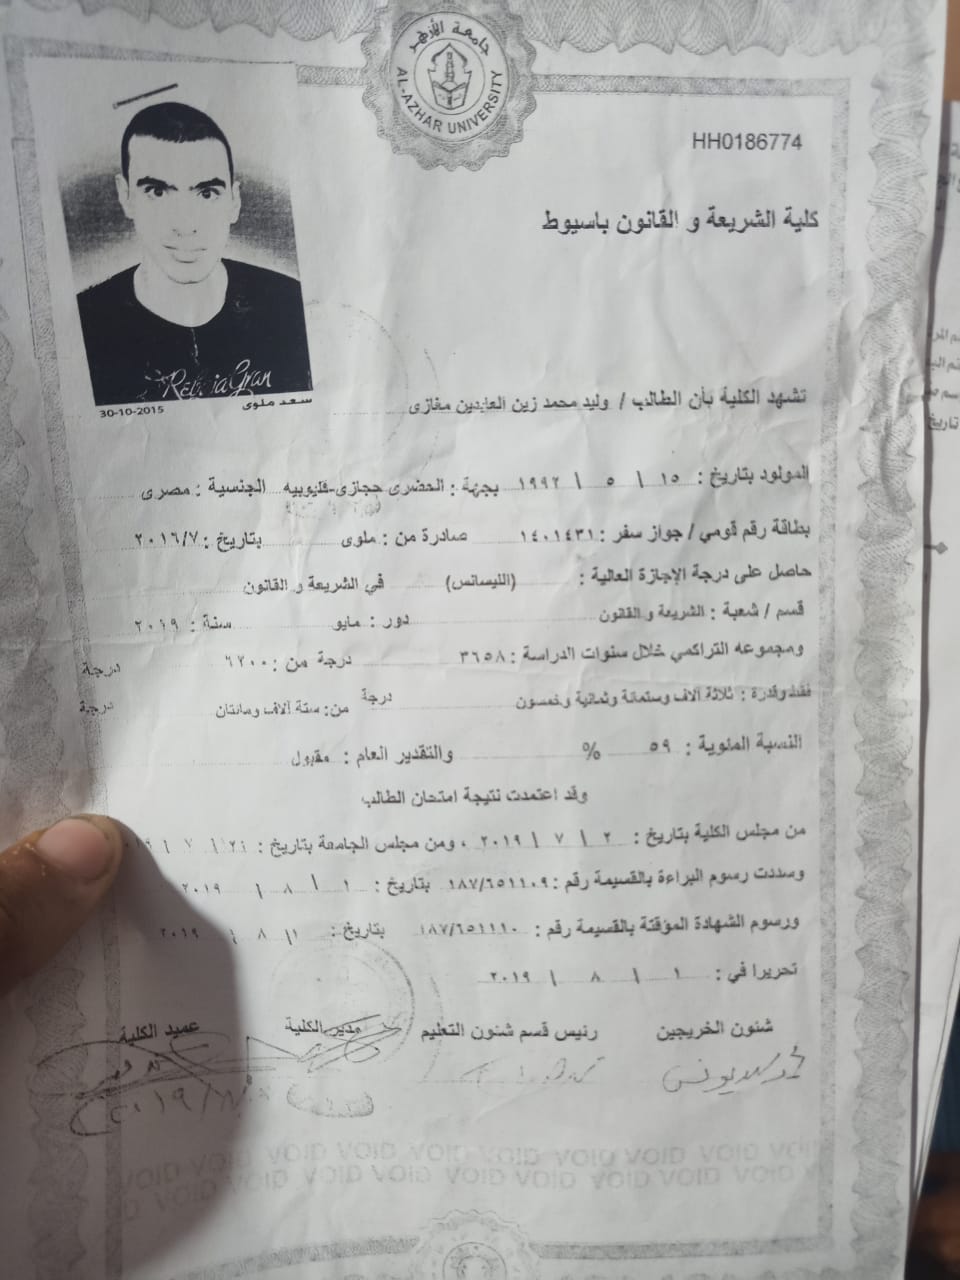 جامعة الأزهر
AL-AZHAR UNIVERSITY
HH0186774
كلية الشريعة و القانون باسيوط
30-10-2015 سعد ملوى
تشهد الكلية بأن الطالب / وليد محمد زين العابدين مغازى
المولود بتاريخ : ١٥ / ٥ / ١٩٩٢ بجهة : الحضرى حجازى-قليوبيه الجنسية : مصرى
بطاقة رقم قومي / جواز سفر : ١٤٠١٤٣١ صادرة من : ملوى بتاريخ : ٢٠١٦/٧
حاصل على درجة الإجازة العالية : (الليسانس) في الشريعة و القانون
قسم / شعبة : الشريعة و القانون دور : مايو سنة : ٢٠١٩
ومجموعه التراكمي خلال سنوات الدراسة : ٣٦٥٨ درجة من : ٦٢٠٠ درجة
فقط وقدرة : ثلاثة آلاف وستمائة وثمانية وخمسون درجة من: ستة آلاف ومائتان درجة
النسبة المئوية : ٥٩ % والتقدير العام : مقبول
وقد اعتمدت نتيجة امتحان الطالب
من مجلس الكلية بتاريخ : ٢ / ٧ / ٢٠١٩ ، ومن مجلس الجامعة بتاريخ : / ٧ /
وسددت رسوم البراءة بالقسيمة رقم : ١٨٧/٦٥١١٠٩ بتاريخ : ١ / ٨ / ٢٠١٩
ورسوم الشهادة المؤقتة بالقسيمة رقم : ١٨٧/٦٥١١١٠ بتاريخ : ١ / ٨ / ٢٠١٩
تحريرا في : ١ / ٨ / ٢٠١٩
شئون الخريجين رئيس قسم شئون التعليم مدير الكلية عميد الكلية
VOID VOID VOID VOID VOID VOID VOID VOID VOID
VOID VOID VOID VOID VOID VOID VOID VOID VOID